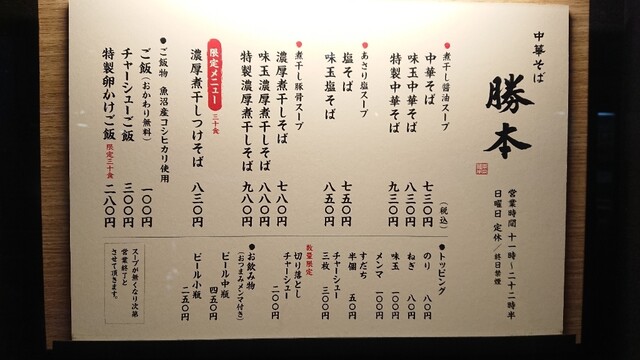 中華そば
勝本
営業時間 十一時~二十二時半
日曜日 定休/終日禁煙
●煮干し醤油スープ
(税込)
中華そば 七三〇円
味玉中華そば 八三〇円
特製中華そば 九三〇円
●あさり塩スープ
塩そば 七五〇円
味玉塩そば 八五〇円
●煮干し豚骨スープ
濃厚煮干しそば 七八〇円
味玉濃厚煮干しそば 八八〇円
特製濃厚煮干しそば 九八〇円
限定メニュー 三十食
濃厚煮干しつけそば 八三〇円
●ご飯物 魚沼産コシヒカリ使用
ご飯(おかわり無料) 一〇〇円
チャーシューご飯 三〇〇円
特製卵かけご飯 限定三十食 二八〇円
●トッピング
のり 八〇円
ねぎ 八〇円
味玉 一〇〇円
メンマ 一〇〇円
すだち
半個 五〇円
チャーシュー
三枚 三〇〇円
数量限定
切り落とし
チャーシュー 二〇〇円
●お飲み物
(おつまみメンマ付き)
ビール中瓶 四五〇円
ビール小瓶 二五〇円
スープが無くなり次第
営業終了と
させて頂きます。